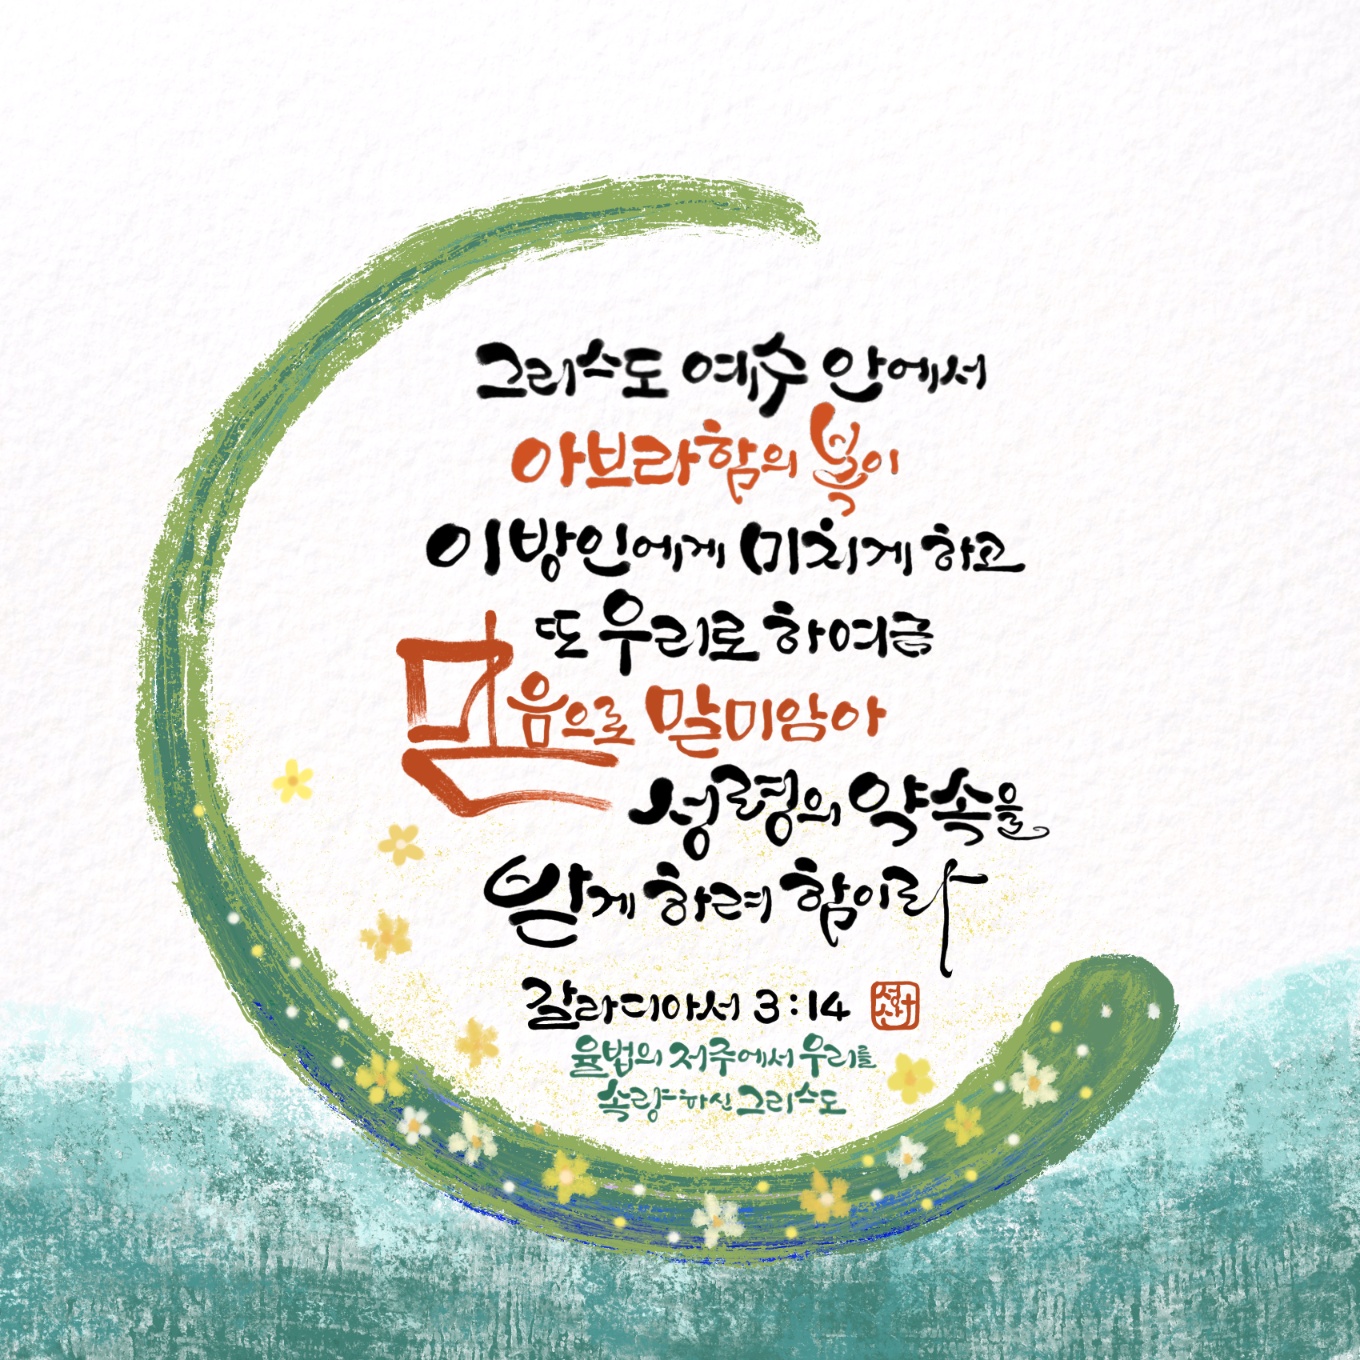 그리스도 예수 안에서
아브라함의 복이
이방인에게 미치게 하고
또 우리로 하여금
믿음으로 말미암아
성령의 약속을
받게 하려 함이라
갈라디아서 3:14
율법의 저주에서 우리를
속량하신 그리스도